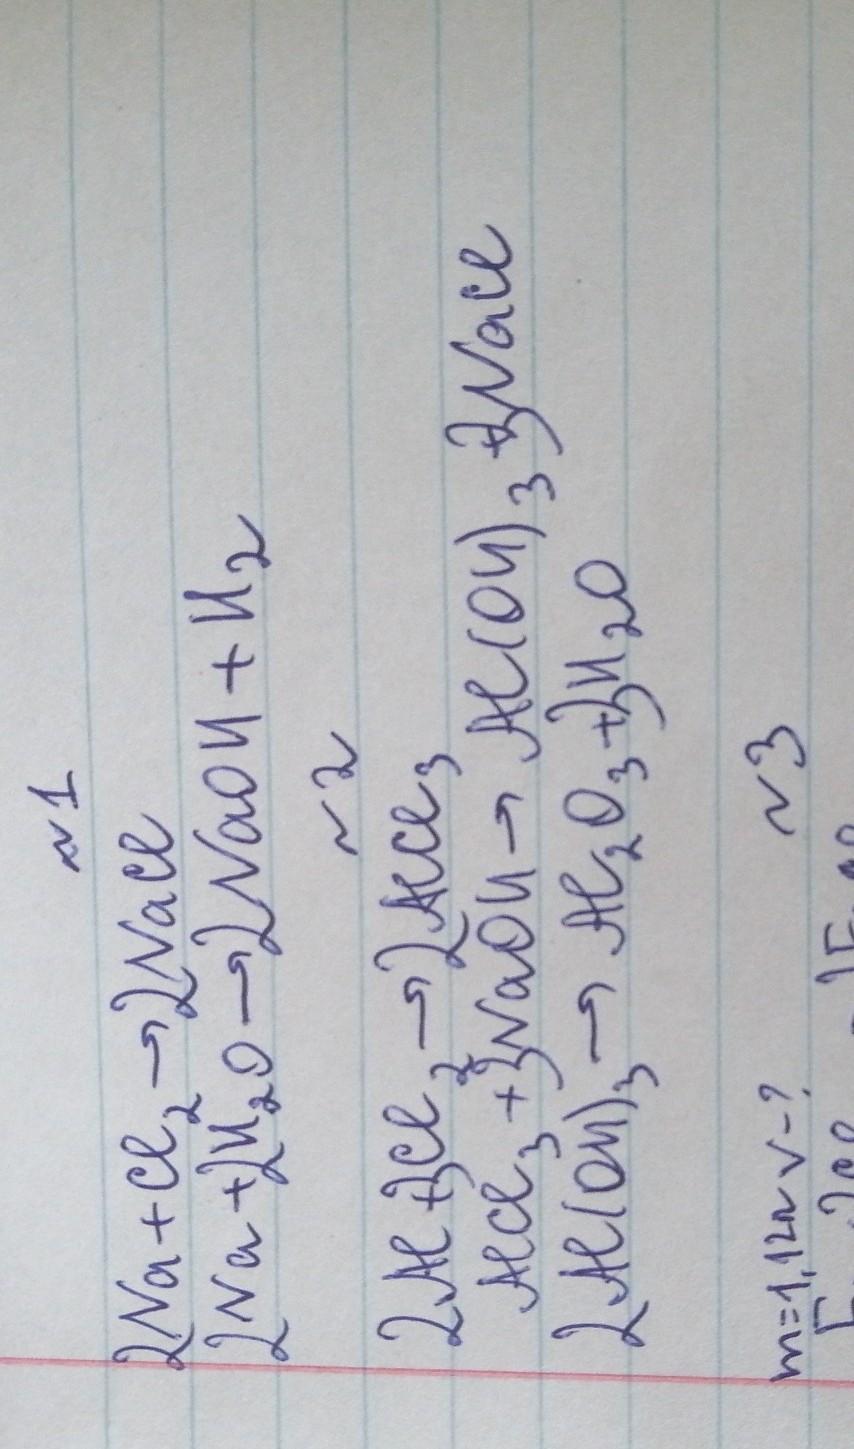 №1
2Na + Cl₂ → 2NaCl
2Na + 2H₂O → 2NaOH + H₂
№2
2Al + 3Cl₂ → 2AlCl₃
AlCl₃ + 3NaOH → Al(OH)₃ + 3NaCl
2Al(OH)₃ → Al₂O₃ + 3H₂O
№3
m=1,12л V-?